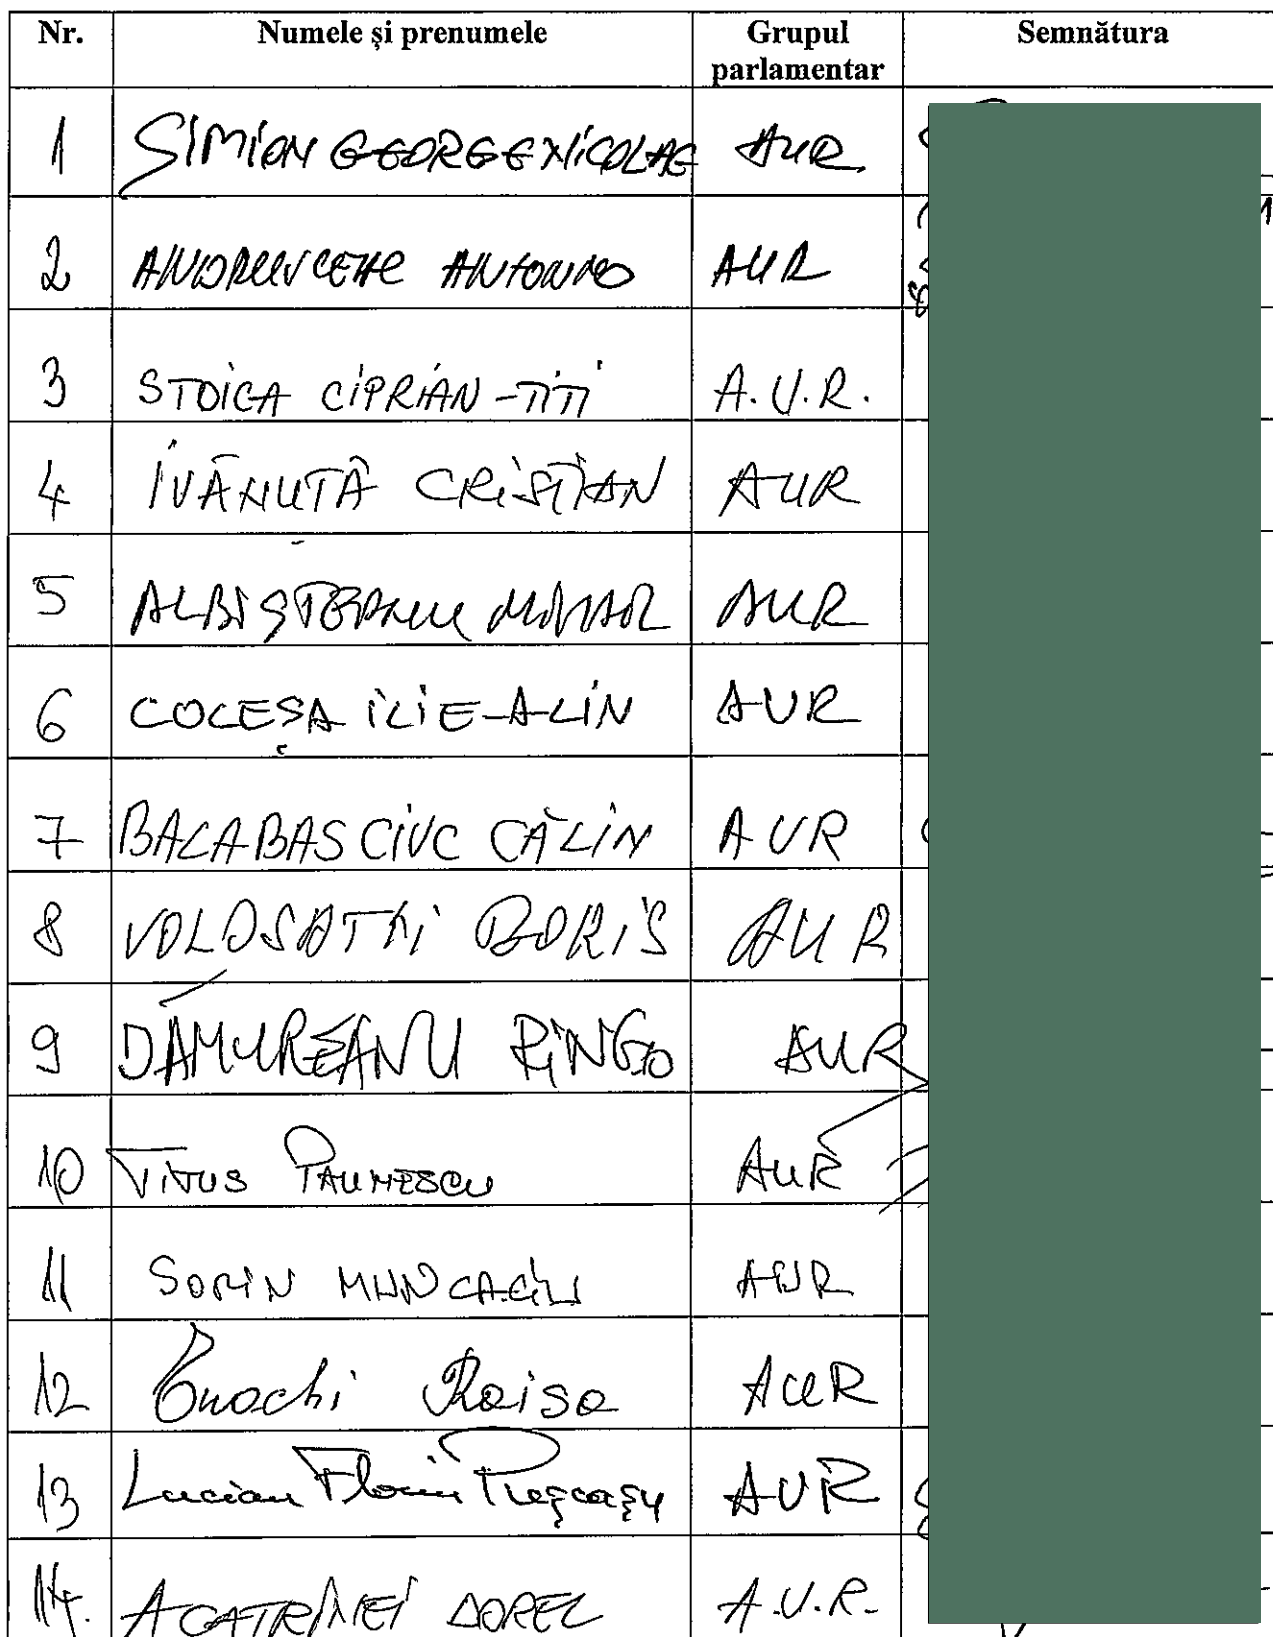 Nr. Numele și prenumele Grupul parlamentar Semnătura
1 SIMION GEORGE NICOLAE AUR
2 ANDRUSCEAC ANTONIO AUR
3 STOICA CIPRIAN-TITI A.U.R.
4 IVĂNUȚĂ CRISTIAN AUR
5 ALBIȘTEANU MIHAIL AUR
6 COLEȘA ILIE-ALIN AUR
7 BALABASCIUC CĂLIN AUR
8 VOLOSATÎI BORIS AUR
9 DĂMUREANU RINGO AUR
10 TITUS PAUNESCU AUR
11 SORIN MUNCACIU AUR
12 Enachi Raisa AUR
13 Lucian Florin Pușcașu AUR
14. ACATRINEI DOREL A.U.R.